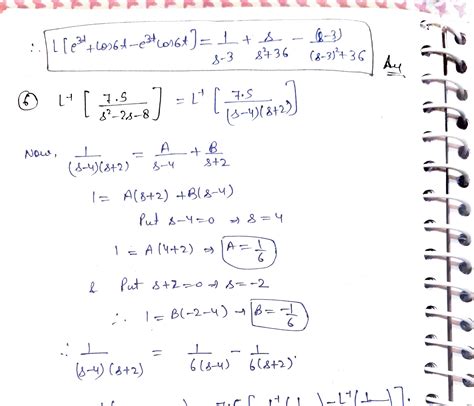 ∴ L[e^{3t}+cos6t-e^{3t}cos6t] = 1/(s-3) + s/(s²+36) - (s-3)/((s-3)²+36)
Ans
⑥ L⁻¹[7.5/(s²-2s-8)] = L⁻¹[7.5/((s-4)(s+2))]
Now, 1/((s-4)(s+2)) = A/(s-4) + B/(s+2)
1 = A(s+2) + B(s-4)
Put s-4=0 ⇒ s=4
1 = A(4+2) ⇒ A = 1/6
& Put s+2=0 ⇒ s=-2
∴ 1 = B(-2-4) → B = -1/6
∴ 1/((s-4)(s+2)) = 1/(6(s-4)) - 1/(6(s+2)).